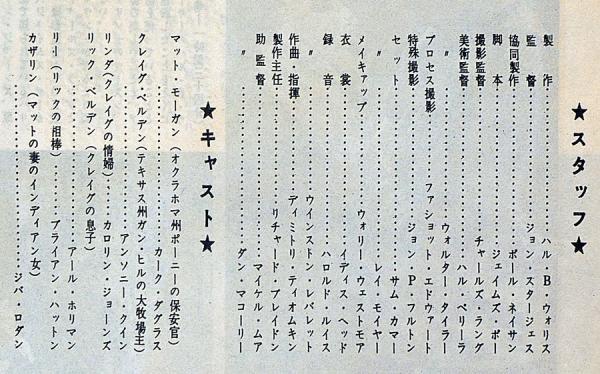 ★スタッフ★
製作……ハル・B・ウォリス
監督……ジョン・スタージェス
協同製作……ポール・ネイサン
脚本……ジェイムズ・ポー
撮影監督……チャールズ・ラング
美術監督……ハル・ペリーラ
〃……ウォルター・タイラー
プロセス撮影……ファショット・エドワァート
特殊撮影……ジョン・P・フルトン
セット……サム・カマー
〃……レイ・モイヤー
メイキァップ……ウォリー・ウェストモア
衣裳……イディス・ヘッド
録音……ハロルド・ルイス
〃……ウインストン・レバレット
作曲・指揮……ディミトリ・ティオムキン
製作主任……リチャード・ブレイドン
助監督……マイケル・ムア
〃……ダン・マコーリー
★キャスト★
マット・モーガン(オクラホマ州ポーニーの保安官)
……カーク・ダグラス
クレイグ・ベルデン(テキサス州ガン・ヒルの大牧場主)
……アンソニー・クイン
リンダ(クレイグの情婦)……カロリン・ジョーンズ
リック・ベルデン(クレイグの息子)
……アール・ホリマン
リー(リックの相棒)……ブライアン・ハットン
カザリン(マットの妻のインディアン女)
……ジバ・ロダン